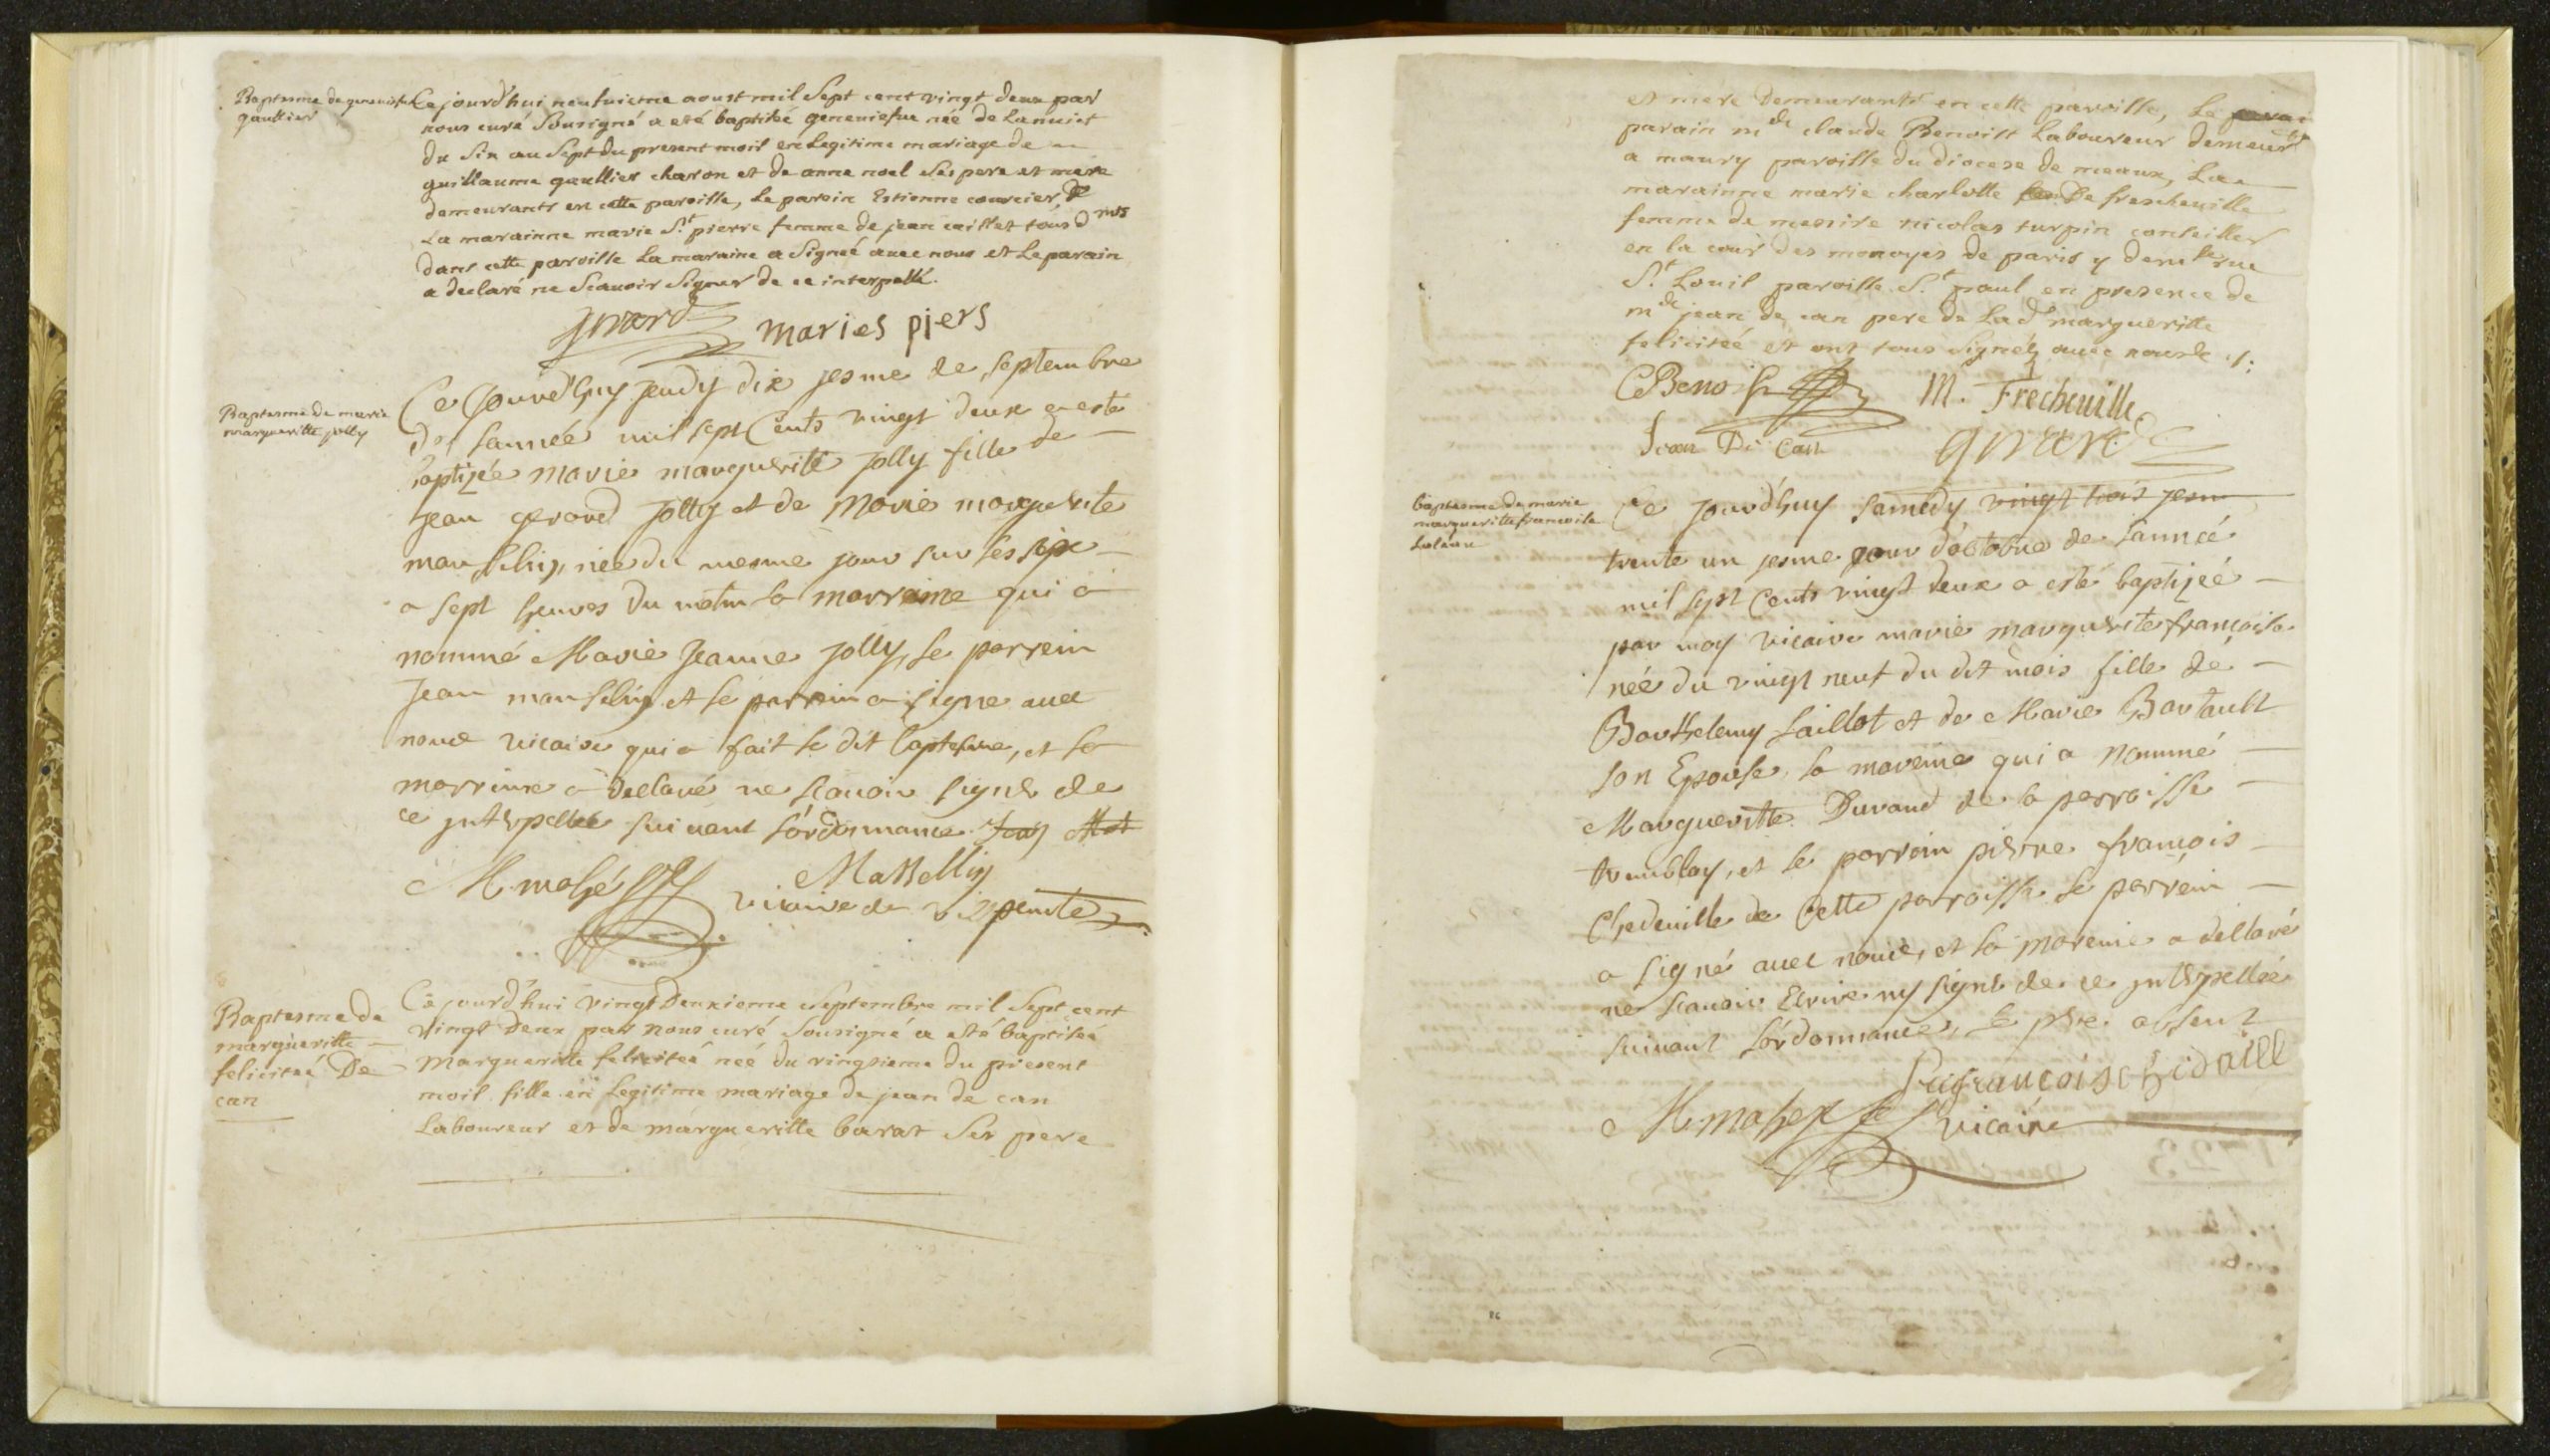 Baptesme de geneviefue
gaultier
Ce jourd'hui neufuieme aoust mil Sept cent vingt deux par
nous curé Sousigné a eté baptisée geneuiefue neé de La nuict
du Six au Sept du present mois en Legitime mariage de
guillaume gaultier charon et de anne noel Ses pere et mere
demeurants en cette paroisse, Le parein Estienne courcier, &
La marainne marie St pierre femme de jean caillet tous dmts
dans cette paroisse La maraine a Signeé auec nous et Le parain
a declaré ne Scauoir Signer de ce interpellé.
maries piers
Baptesme de marie
margueritte jolly
Ce Jourd'huy jeudy dix jesme de septembre
de l'année mil sept Cents vingt deux a esté
baptizée marie marguerite jolly fille de
jean gerard jolly et de Marie marguerite
mansellin, née du mesme jour sur les six
a sept heures du matin la marraine qui a
nommé Marie Jeanne jolly, le parrein
Jean mansellin et le parrein a signe auec
nous vicaire qui a fait le dit baptesme, et la
marrine a declaré ne scauoir signer de
ce jnterpellée suivant l'ordonnance
M. mahé
Massellin
vicaire de
Baptesme de
margueritte
feliciteé De
can
Ce jourd'hui vingt Deuxieme Septembre mil Sept cent
vingt Deux par nous curé Sousigné a eté baptiseé
Marguerite feliciteé neé du vingtieme du present
mois fille en Legitime mariage de jean de can
Laboureur et de margueritte barat Ses pere
et mere demeurants en cette paroisse, Le
parain mde claude Benoist Laboureur demeurt
a maury paroisse du diocese de meaux, La
marainne marie charlotte De frescheuille
femme de messire nicolas turpin conseiller
en la cour des monoyes de paris y demte rue
St Louis paroisse St paul en presence de
mde jean de can pere de La de marguerite
feliciteé et ont tous signez auec nous
CBenoist
M. Frecheuille
Jean De Can
baptesme de marie
marguerittefrancoise
Ce jourd'huy samedy vingt trois jesm
trente un jesme jour d'octobre de l'année
mil sept Cents vingt deux a esté baptizeé
par moy vicaire marie marguerite françoise
née du vingt neuf du dit mois fille de
Barthelemy Laillot et de Marie Bartault
son Epouse, la mareine qui a nommé
Marguerite Durand de la parroisse
tremblay, et le parrein pierre françois
Chedeuille de Cette parroisse le parrein
a signé auec nous, et la mareine a declaré
ne scauoir Ecrire ny signer de ce jnterpellée
suivant l'ordonnance, le pere absent
françois chidoille
M. mahé
vicaire